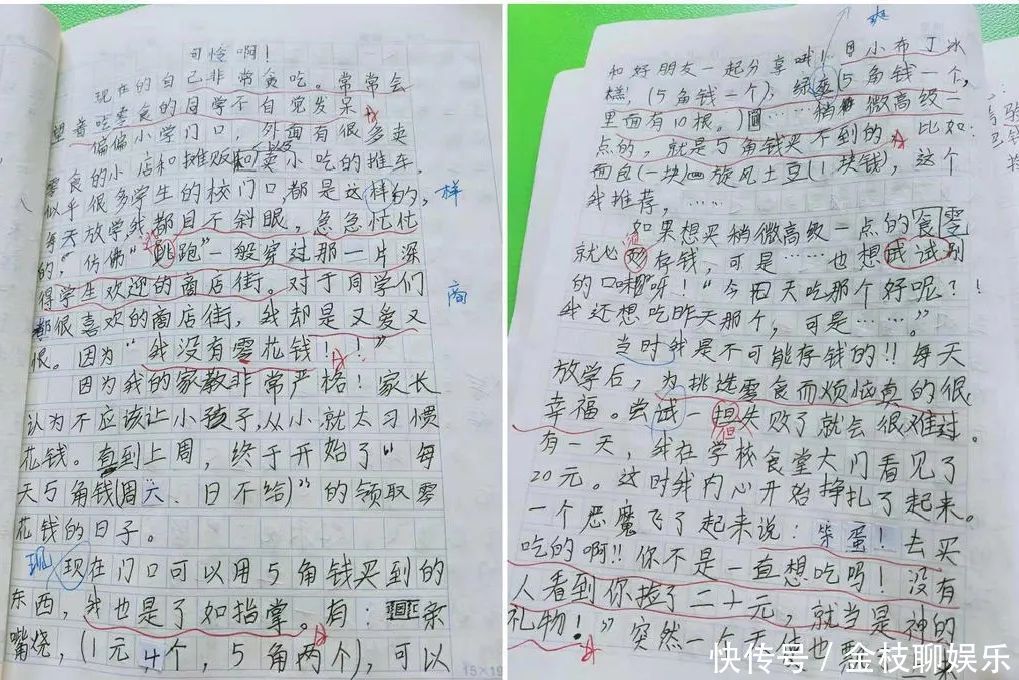 可怜啊！
现在的自己非常贪吃。常常会
望着吃零食的同学不自觉发呆
偏偏小学门口，外面有很多卖
零食的小店和摊贩和卖小吃的推车。
似乎很多学生的校门口，都是这样的，
样
每天放学，我都目不斜眼，急急忙忙
的，“仿佛”逃跑”一般穿过那一片深
得学生欢迎的商店街。对于同学们
商
都很喜欢的商店街，我却是又爱又
恨。因为“我没有零花钱！！”
因为我的家教非常严格！家长
认为不应该让小孩子，从小就太习惯
花钱。直到上周，终于开始了“每
天5角钱(周六、日不给)”的领取零
花钱的日子。
现
现在门口可以用5角钱买到的
东西，我也是了如指掌。有：亲
嘴烧，(1元4个，5角两个)，可以
15×19
爽
和好朋友一起分享哦！小布丁冰
糕！(5角钱一个)，绿爽(5角钱一个，
里面有10根。)……稍微高级一
点的，就是5角钱买不到的。比如：
面包(一块)旋风土豆(1块钱)，这个
我推荐，……
如果想买稍微高级一点的食零
就必须存钱，可是……也想试试别
的口味呀！“今天吃那个好呢？！
我还想吃昨天那个，可是……。”
当时我是不可能存钱的！！每天
放学后，为挑选零食而烦恼真的很
幸福。尝试一担失败了就会很难过。
但
有一天，我在学校食堂大门看见了
20元。这时我内心开始挣扎了起来。
一个恶魔飞了起来说：笨蛋！去买
吃的啊！！你不是一直想吃吗！没有
人看到你捡了二十元，就当是神的
礼物！”突然一个天使也
快传号 / 金枝聊娱乐